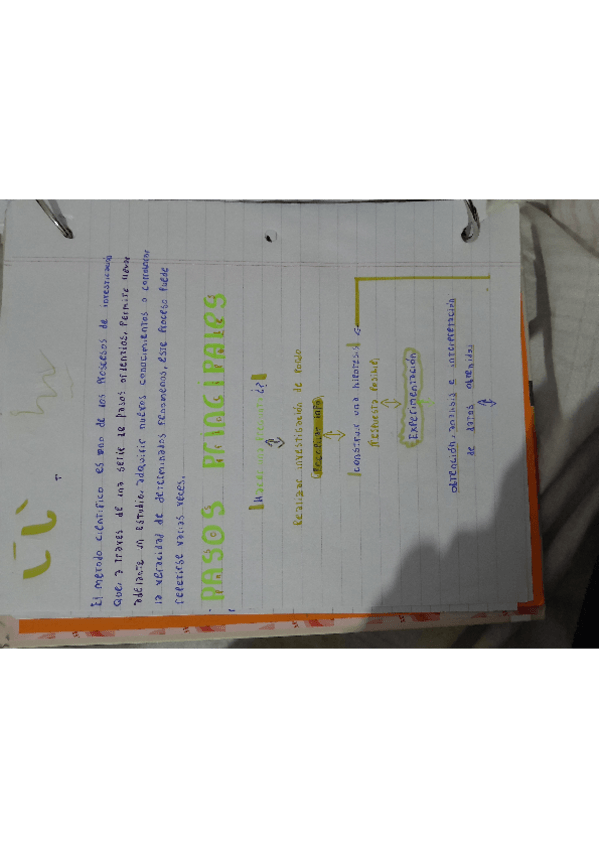 El metodo cientifico es uno de los procesos de investigación
que, a traves de una serie de pasos ordenados, permite llevar
adelante un estudio, adquirir nuevos conocimientos o corroborar
la veracidad de determinados fenomenos, este proceso puede
repetirse varias veces.
PASOS PRINCIPALES
Hacer una pregunta ¿?
Realizar investigación de fondo
Recopilar info
construir una hipotesis
Respuesta posible
Experimentación
obtención, analisis e interpretación
de datos obtenidos